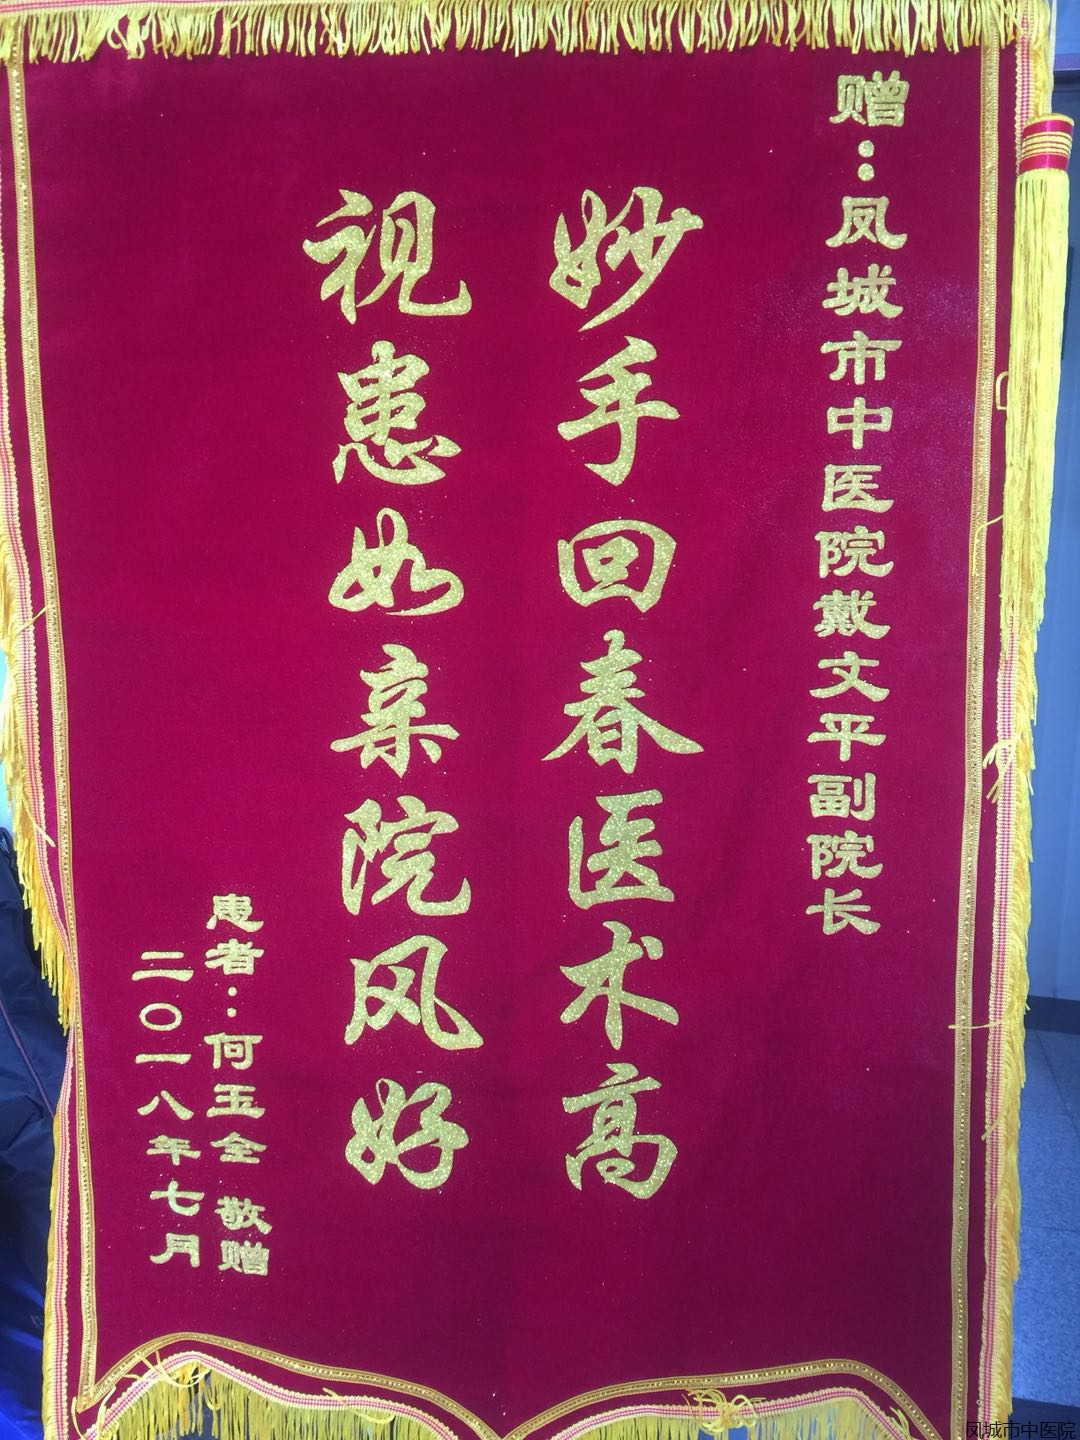 赠：凤城市中医院戴文平副院长
妙手回春医术高
视患如亲院风好
患者：何玉全 敬赠
二〇一八年七月
凤城市中医院